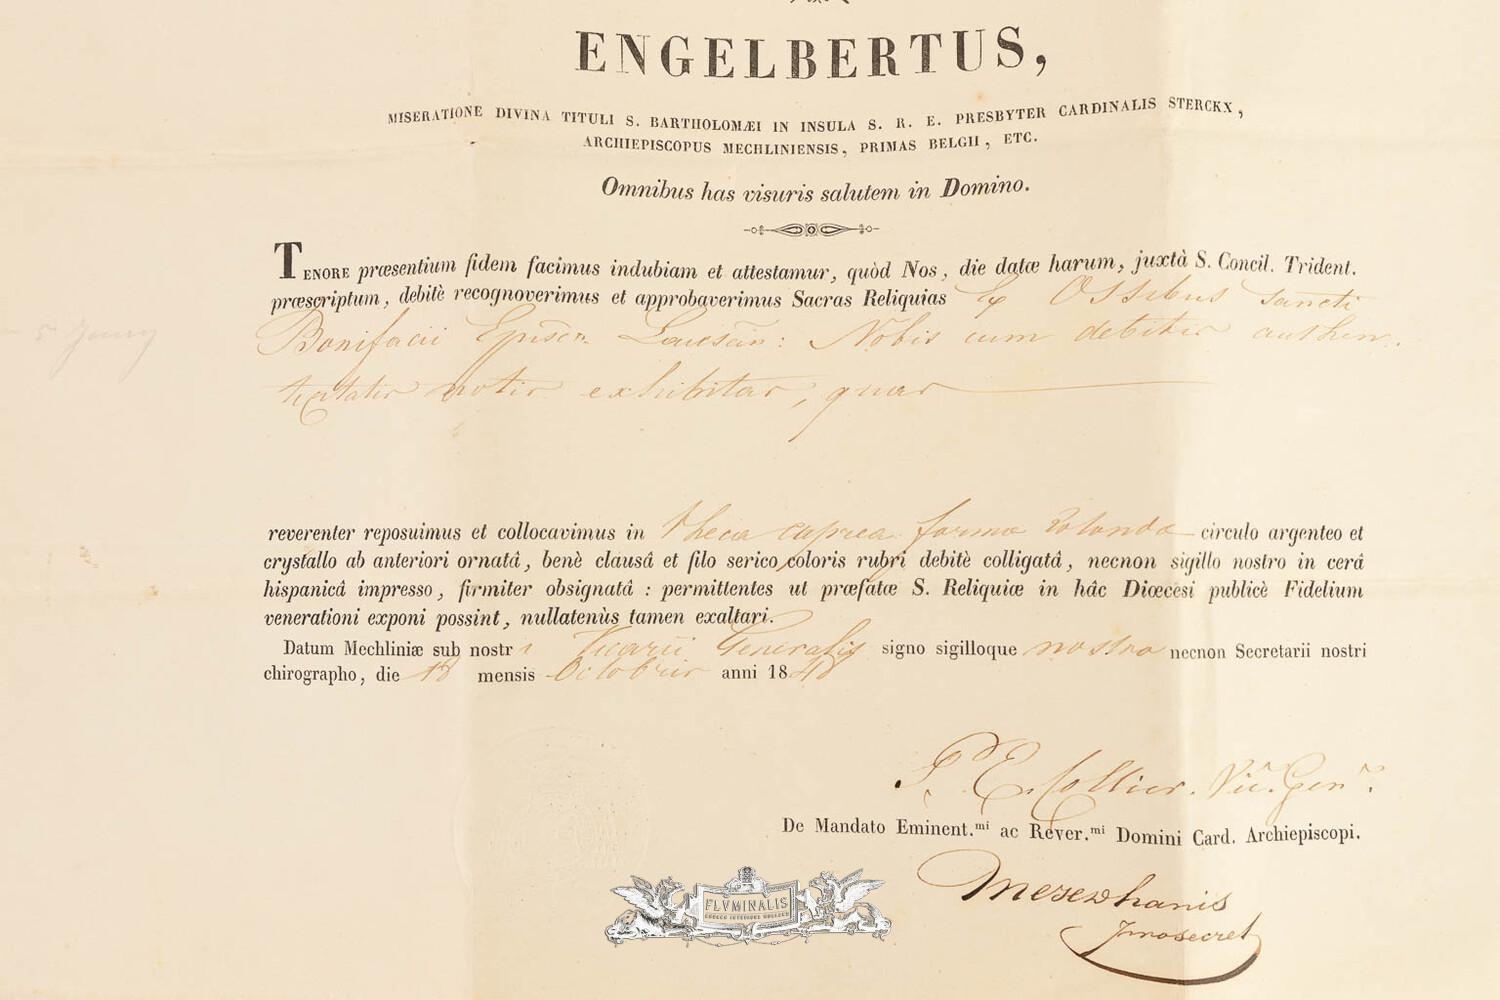 ENGELBERTUS,
MISERATIONE DIVINA TITULI S. BARTHOLOMÆI IN INSULA S. R. E. PRESBYTER CARDINALIS STERCKX,
ARCHIEPISCOPUS MECHLINIENSIS, PRIMAS BELGII, ETC.
Omnibus has visuris salutem in Domino.
TENORE præsentium fidem facimus indubiam et attestamur, quòd Nos, die datæ harum, juxtà S. Concil. Trident.
præscriptum, debitè recognoverimus et approbaverimus Sacras Reliquias Ex Ossibus Sancti
Bonifacii Episc. Nobis cum debitis authen
ticitatis notis exhibitas, quas
reverenter reposuimus et collocavimus in theca cuprea formæ rotundæ circulo argenteo et
crystallo ab anteriori ornatâ, benè clausâ et filo serico coloris rubri debitè colligatâ, necnon sigillo nostro in cerâ
hispanicâ impresso, firmiter obsignatâ : permittentes ut præfatæ S. Reliquiæ in hâc Diœcesi publicè Fidelium
venerationi exponi possint, nullatenùs tamen exaltari.
Datum Mechliniæ sub nostri Vicarii Generalis signo sigilloque nostro necnon Secretarii nostri
chirographo, die 18 mensis Octobris anni 1848
P. E. Collier. Vic. Gen.
De Mandato Eminent.mi ac Rever.mi Domini Card. Archiepiscopi.
prosecret
FLVMINALIS